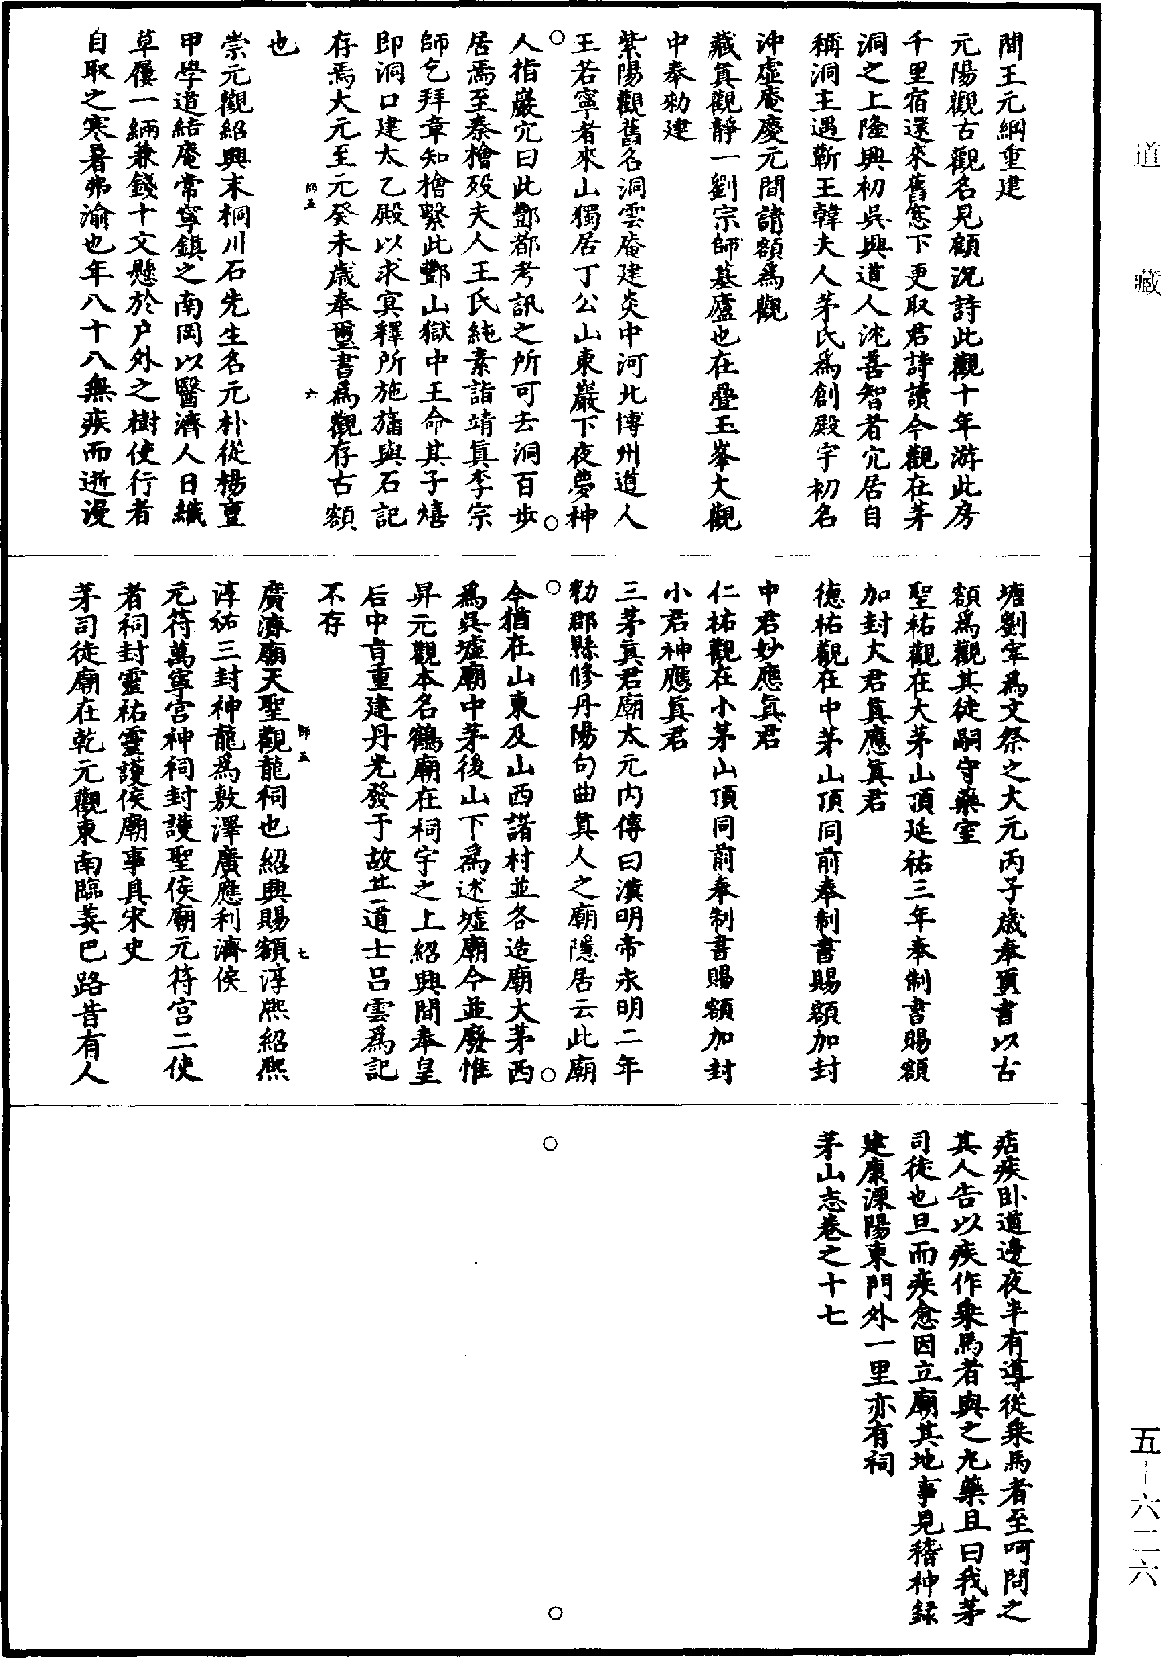 道藏
間王元綱重建
元陽觀古觀名見顧況詩此觀十年游此房
千里宿還來舊窓下更取君詩讀今觀在茅
洞之上隆興初吳興道人沈善智者宂居自
稱洞主遇蘄王韓夫人茅氏爲創殿宇初名
沖虛庵慶元間請額爲觀
藏眞觀靜一劉宗師墓廬也在疊玉峯大觀
中奉勑建
紫陽觀舊名洞雲庵建炎中河北博州道人
王若寧者來山獨居丁公山東巖下夜夢神
人指巖宂曰此酆都考訊之所可去洞百步
居焉至秦檜歿夫人王氏純素詣靖眞李宗
師乞拜章知檜繫此酆山獄中王命其子熺
即洞口建太乙殿以求冥釋所施旛與石記
存焉大元至元癸未歲奉璽書爲觀存古額
也
崇元觀紹興末桐川石先生名元朴從楊重
甲學道結庵常寧鎮之南岡以醫濟人日織
草屨一緉兼錢十文懸於户外之樹使行者
自取之寒暑弗渝也年八十八無疾而逝漫
塘劉宰爲文祭之大元丙子歲奉璽書以古
額爲觀其徒嗣守藥室
聖祐觀在大茅山頂延祐三年奉制書賜額
加封大君眞應眞君
德祐觀在中茅山頂同前奉制書賜額加封
中君妙應眞君
仁祐觀在小茅山頂同前奉制書賜額加封
小君神應眞君
三茅眞君廟太元内傳曰漢明帝永明二年
勑郡縣修丹陽句曲眞人之廟隱居云此廟
今猶在山東及山西諸村並各造廟大茅西
爲吳墟廟中茅後山下爲述墟廟今並廢惟
昇元觀本名鶴廟在祠宇之上紹興間奉皇
后中旨重建丹光發于故井道士吕雲爲記
不存
廣濟廟天聖觀龍祠也紹興賜額淳熙紹熙
淳祐三封神龍爲敷澤廣應利濟侯
元符萬寧宫神祠封護聖侯廟元符宫二使
者祠封靈祐靈護侯廟事具宋史
茅司徒廟在乾元觀東南臨葖巴路昔有人
痁疾卧道邊夜半有導從乗馬者至呵問之
其人告以疾作乗馬者與之九藥且曰我茅
司徒也旦而疾愈因立廟其地事見稽神録
建康溧陽東門外一里亦有祠
茅山志卷之十七
五－六二六